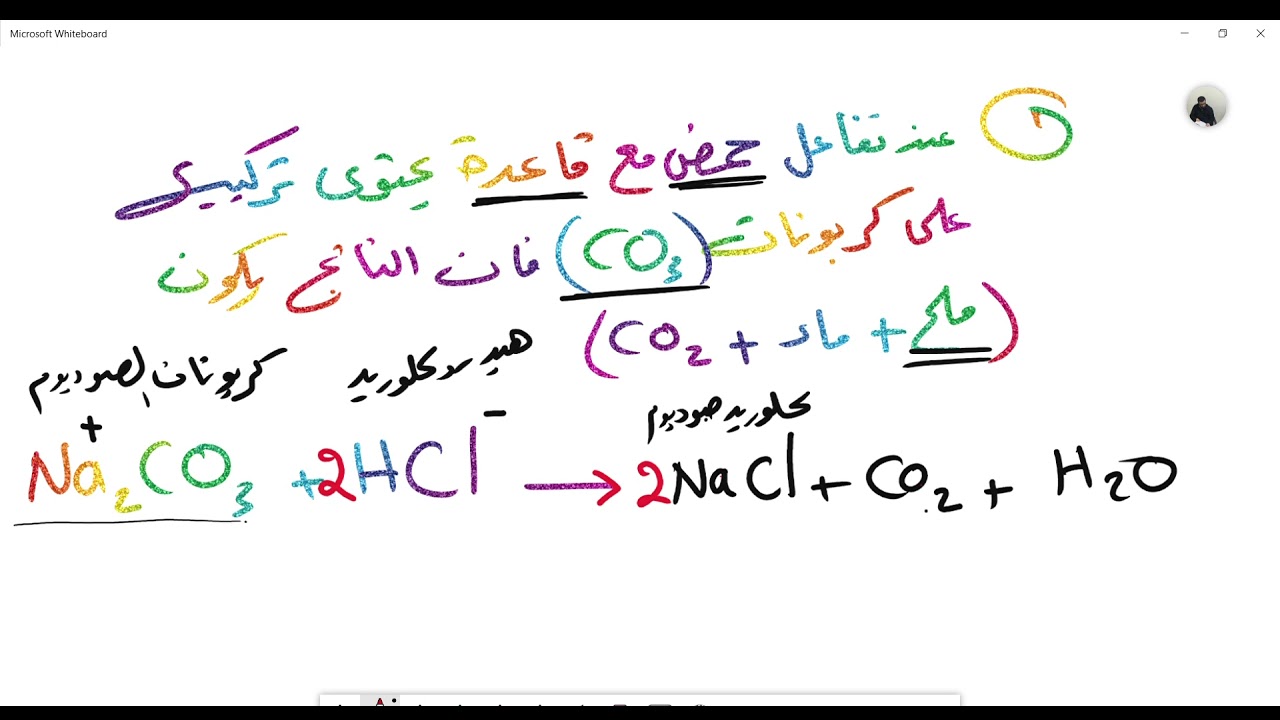 Microsoft Whiteboard
① عند تفاعل حمض مع قاعدة يحتوى تركيبي
على كربونات (CO₃) فان الناتج يكون
(ملح + ماء + CO₂)
كربونات الصوديوم هيدروكلوريد كلوريد صوديوم
+ −
Na₂CO₃ + 2HCl → 2NaCl + CO₂ + H₂O